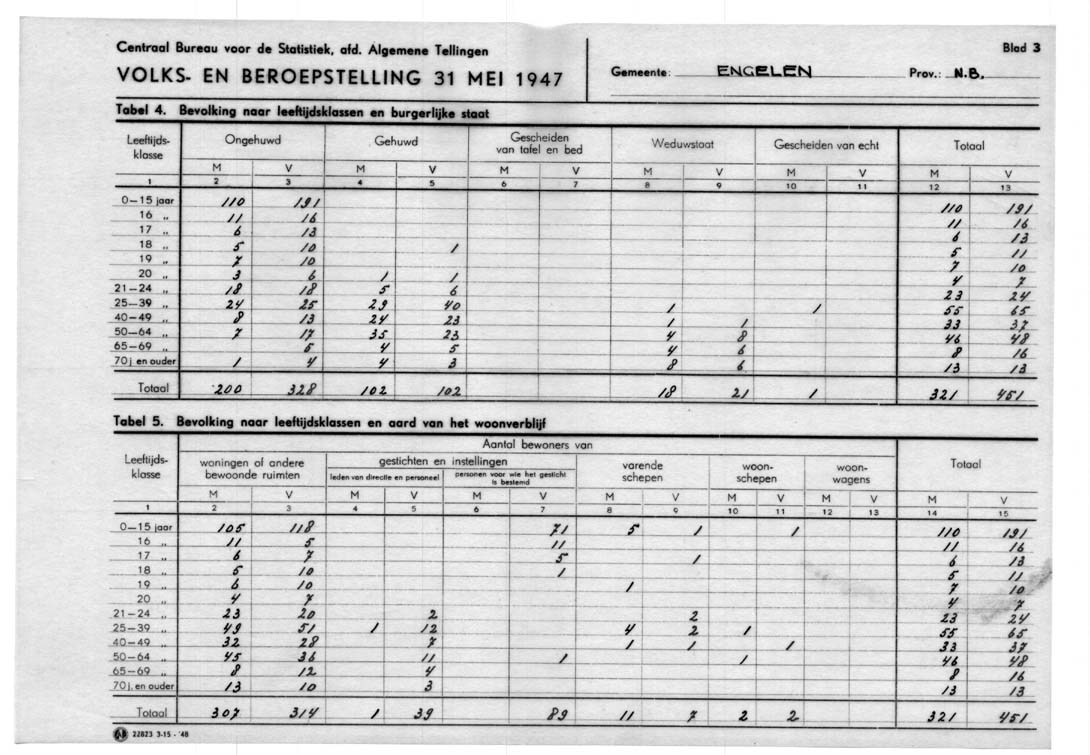 Centraal Bureau voor de Statistiek, afd. Algemene Tellingen
VOLKS- EN BEROEPSTELLING 31 MEI 1947
Gemeente: ENGELEN Prov.: N.B.
Blad 3
Tabel 4. Bevolking naar leeftijdsklassen en burgerlijke staat
Leeftijds-klasse Ongehuwd Gehuwd Gescheiden van tafel en bed Weduwstaat Gescheiden van echt Totaal
M V M V M V M V M V M V
1 2 3 4 5 6 7 8 9 10 11 12 13
0—15 jaar 110 191 110 191
16 „ 11 16 11 16
17 „ 6 13 6 13
18 „ 5 10 1 5 11
19 „ 7 10 7 10
20 „ 3 6 1 1 4 7
21—24 „ 18 18 5 6 23 24
25—39 „ 24 25 29 40 1 1 55 65
40—49 „ 8 13 24 23 1 1 33 37
50—64 „ 7 17 35 23 4 8 46 48
65—69 „ 5 4 5 4 6 8 16
70 j. en ouder 1 4 4 3 8 6 13 13
Totaal 200 328 102 102 18 21 1 321 451
Tabel 5. Bevolking naar leeftijdsklassen en aard van het woonverblijf
Leeftijds-klasse Aantal bewoners van Totaal
woningen of andere bewoonde ruimten gestichten en instellingen varende schepen woon-schepen woon-wagens
leden van directie en personeel personen voor wie het gesticht is bestemd
M V M V M V M V M V M V M V
1 2 3 4 5 6 7 8 9 10 11 12 13 14 15
0—15 jaar 105 118 71 5 1 1 110 191
16 „ 11 5 11 11 16
17 „ 6 7 5 1 6 13
18 „ 5 10 1 5 11
19 „ 6 10 1 7 10
20 „ 4 7 4 7
21—24 „ 23 20 2 2 23 24
25—39 „ 49 51 1 12 4 2 1 55 65
40—49 „ 32 28 7 1 1 1 33 37
50—64 „ 45 36 11 1 1 46 48
65—69 „ 8 12 4 8 16
70 j. en ouder 13 10 3 13 13
Totaal 307 314 1 39 89 11 7 2 2 321 451
22823 3-15 - '48